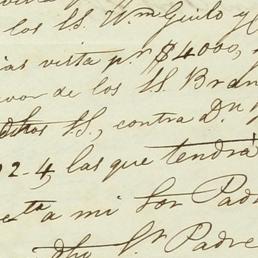 vista y
los SS. Wm Guilo y C
ías vista p.r $4000,
vor de los SS. Bran
dhos SS., contra Dn
2-4, las que tendrá
ta a mi Sor Padr
dho Sr. Padre